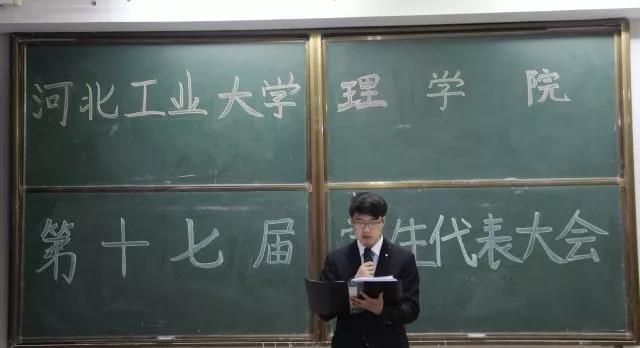 河北工业大学理学院
第十七届学生代表大会